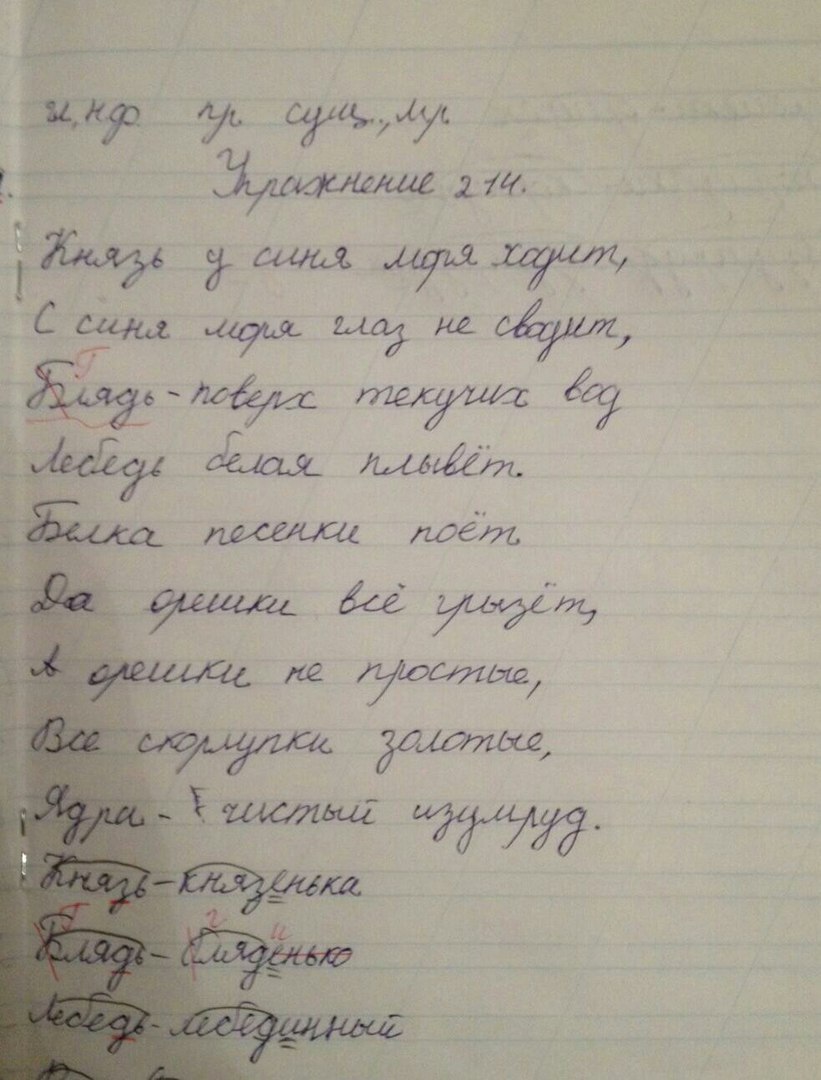 гл, нф. пр. сущ., мр.
Упражнение 214.
Князь у синя моря ходит,
С синя моря глаз не сводит,
Г
Блядь - поверх текучих вод
Лебедь белая плывёт.
Белка песенки поёт
Да орешки всё грызёт,
А орешки не простые,
Все скорлупки золотые,
Ядра - чистый изумруд.
Князь - князенька
Г г и
Блядь - бляденько
Лебедь - лебединный